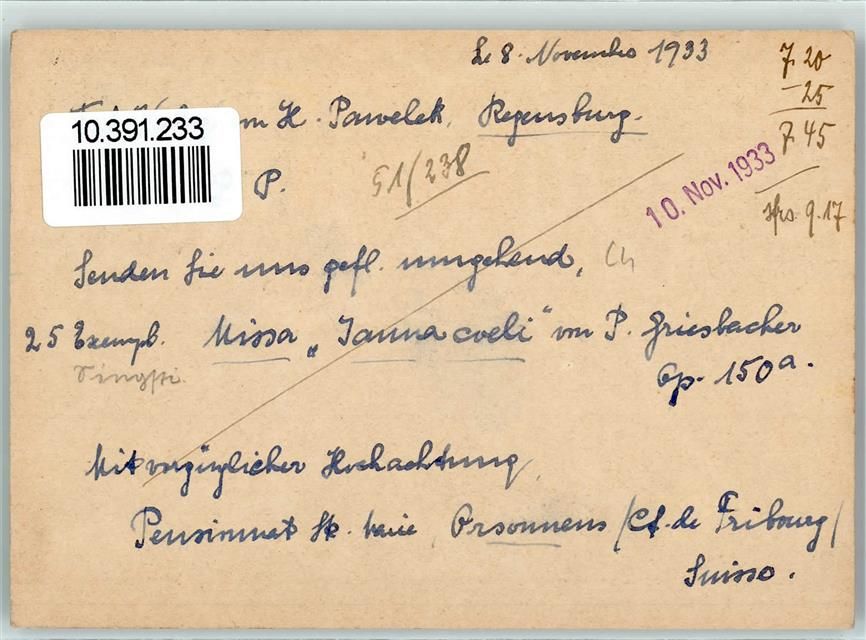 Le 8. Novembre 1933
7.20
25
7.45
sfrs. 9.17
10.391.233
H. Pawelek, Regensburg.
P.
51/238
10. Nov. 1933
Senden Sie uns gefl. umgehend,
25 Exempl. Missa „Janua coeli" von P. Griesbacher
Singsti.
Op. 150a.
Mit vorzüglicher Hochachtung,
Pensionnat Ste. Marie, Orsonnens /Ct. de Fribourg/
Suisse.